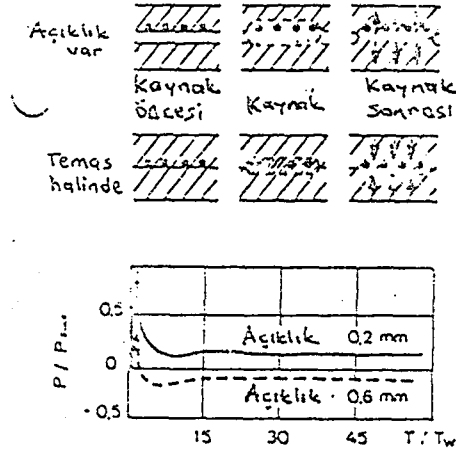 Açıklık
var
Kaynak
öncesi
Kaynak
Kaynak
sonrası
Temas
halinde
0,5
0
- 0,5
Açıklık 0,2 mm
Açıklık · 0,6 mm
15 30 45 T/Tw